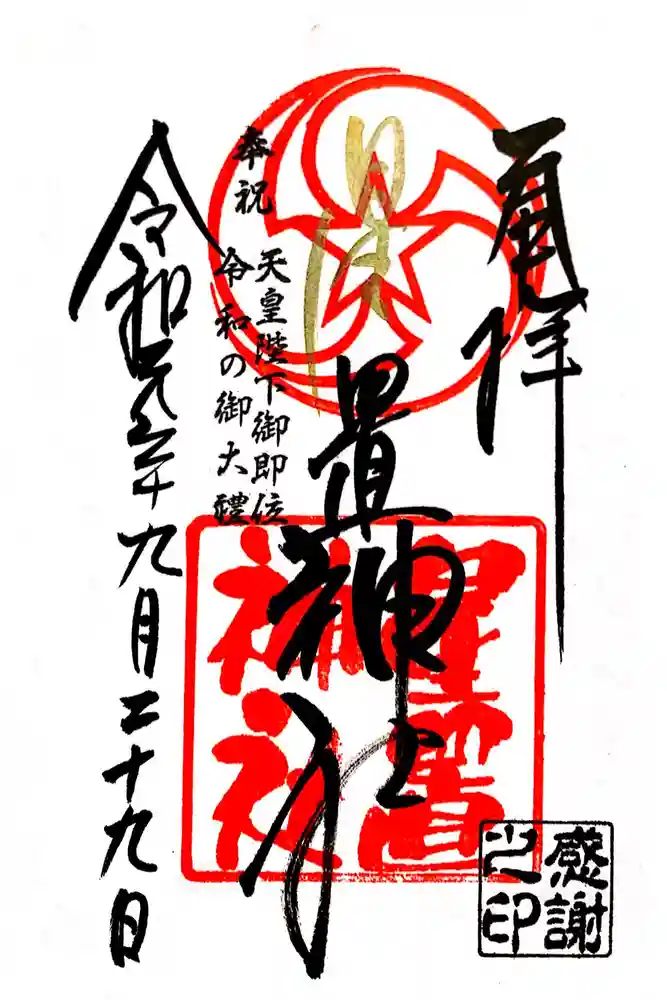 奉拝
星置神社
奉祝
天皇陛下御即位
令和の御大禮
令和元年九月二十九日
星置
神社
感謝
之印